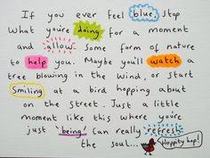 If you ever feel blue, stop
what you're doing for a moment
and allow some form of nature
to help you. Maybe you'll watch a
tree blowing in the wind, or start
smiling at a bird hopping about
on the street. Just a little
moment like this where you're
just 'being' can really refresh
the soul... Hoppity hop!